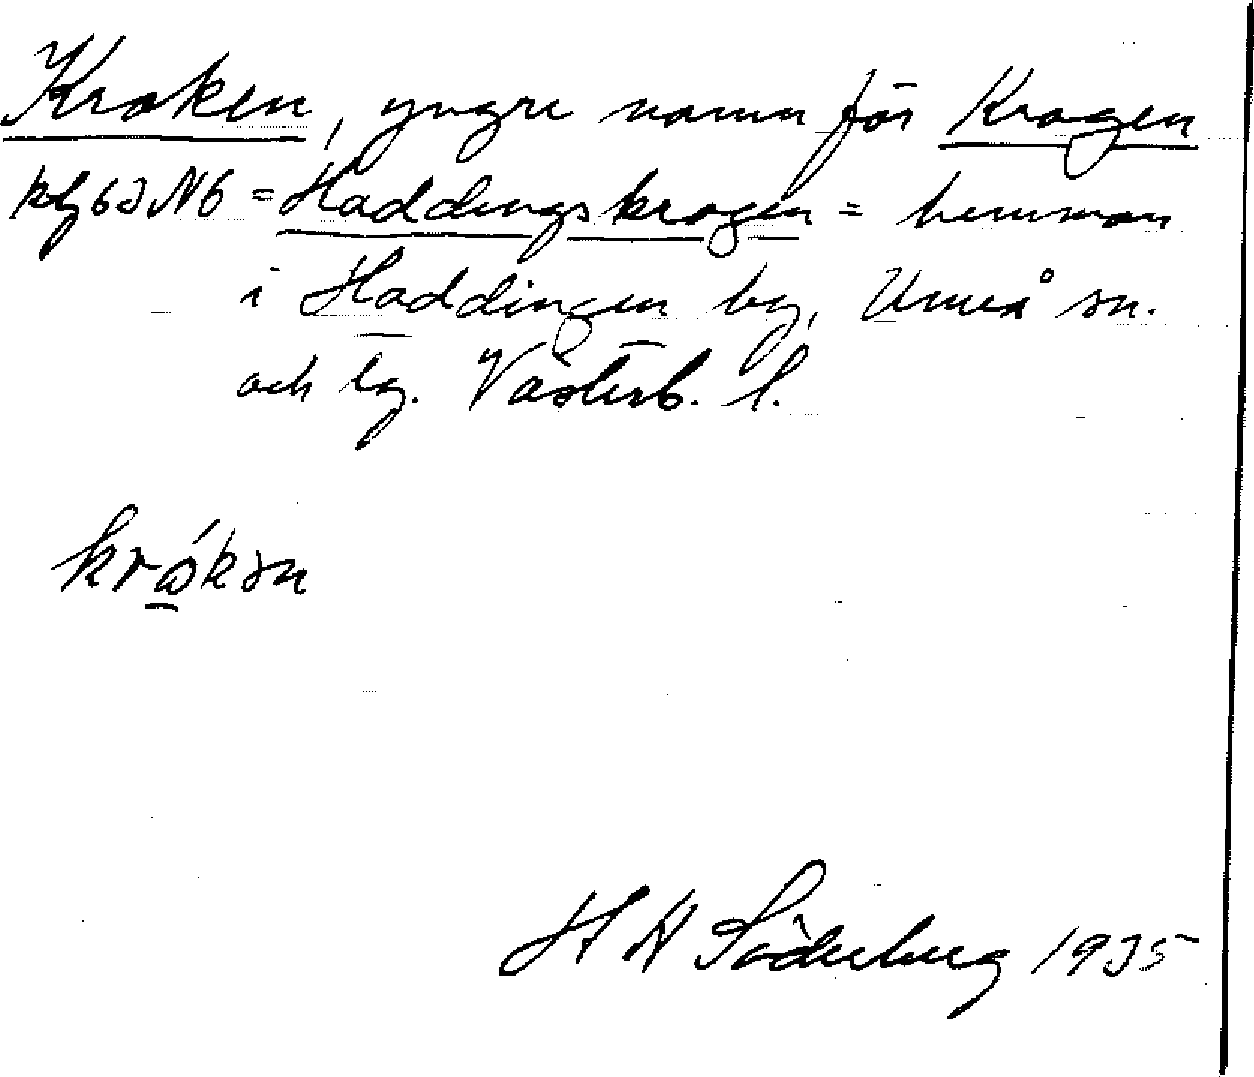 Kraken, yngre namn för Kragen
Haddingskragen = hemman
i Haddingen by, Umeå sn.
och lg. Västerb. l.
H H Söderberg 1935